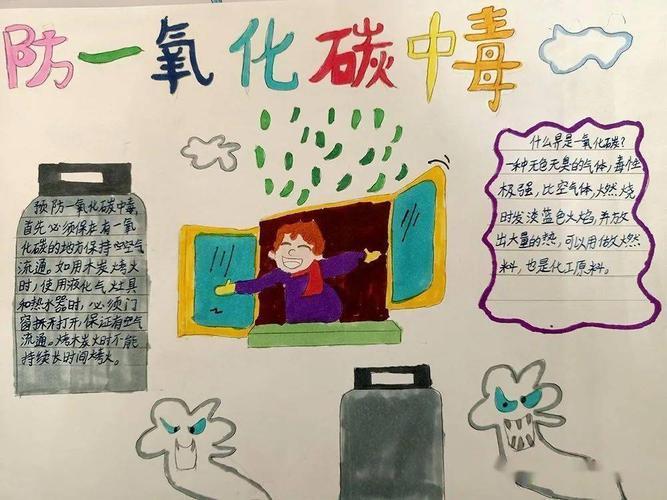 防一氧化碳中毒
预防一氧化碳中毒,
首先必须保在有一氧
化碳的地方保持空气
流通。如用木炭烤火
时,使用液化气灶具
和热水器时,必须门
窗打开,保证有空气
流通。烤木炭火时不能
持续长时间烤火。
什么是一氧化碳?
一种无色无臭的气体,毒性
极强,比空气体,燃烧
时发淡蓝色火焰,并放
出大量的热,可以用做燃
料,也是化工原料。